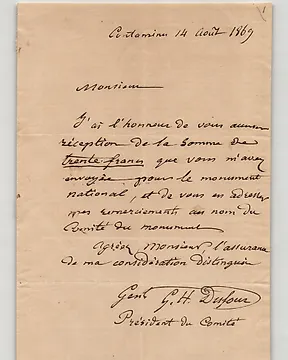 Contamine 14 Août 1869
Monsieur
J'ai l'honneur de vous accuser
réception de la somme de
trente francs que vous m'avez
envoyée pour le monument
national, et de vous en adresser
mes remerciements au nom du
Comité du monument
Agréez Monsieur, l'assurance
de ma considération distinguée
Genl G. H. Dufour
Président du Comité